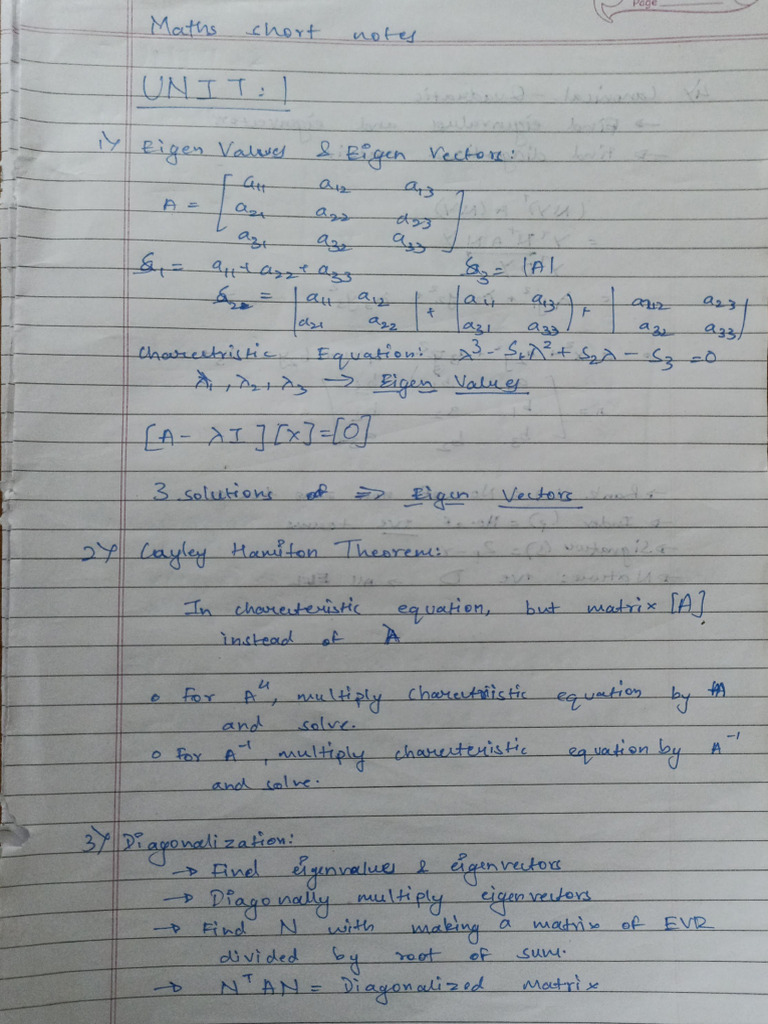 Page
Maths short notes
UNIT: 1
1) Eigen Values & Eigen Vectors:
A = [a11 a12 a13
a21 a22 a23
a31 a32 a33]
S1 = a11 + a22 + a33 S3 = |A|
S2 = |a11 a12| + |a11 a13| + |a22 a23|
|a21 a22| |a31 a33| |a32 a33|
Charectristic Equation: λ³ - S1λ² + S2λ - S3 = 0
λ1, λ2, λ3 → Eigen Values
[A - λI][X] = [0]
3 solutions of => Eigen Vectors
2) Cayley Hamilton Theorem:
In charecteristic equation, but matrix [A]
instead of λ
o For A⁴, multiply charectristic equation by A
and solve.
o For A⁻¹, multiply charecteristic equation by A⁻¹
and solve.
3) Diagonalization:
→ Find eigenvalues & eigenvectors
→ Diagonally multiply eigenvectors
→ Find N with making a matrix of EVR
divided by root of sum.
→ NᵀAN = Diagonalized Matrix